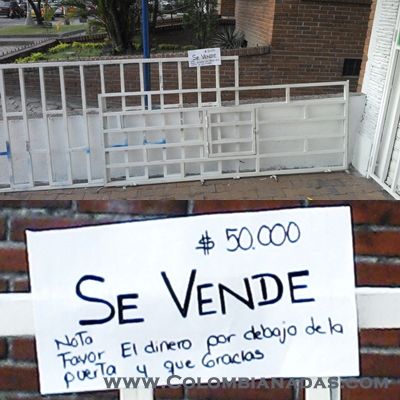 $ 50.000
SE VENDE
Nota
Favor El dinero por debajo de la
puerta y que Gracias
www.Colombianadas.com
SE VENDE